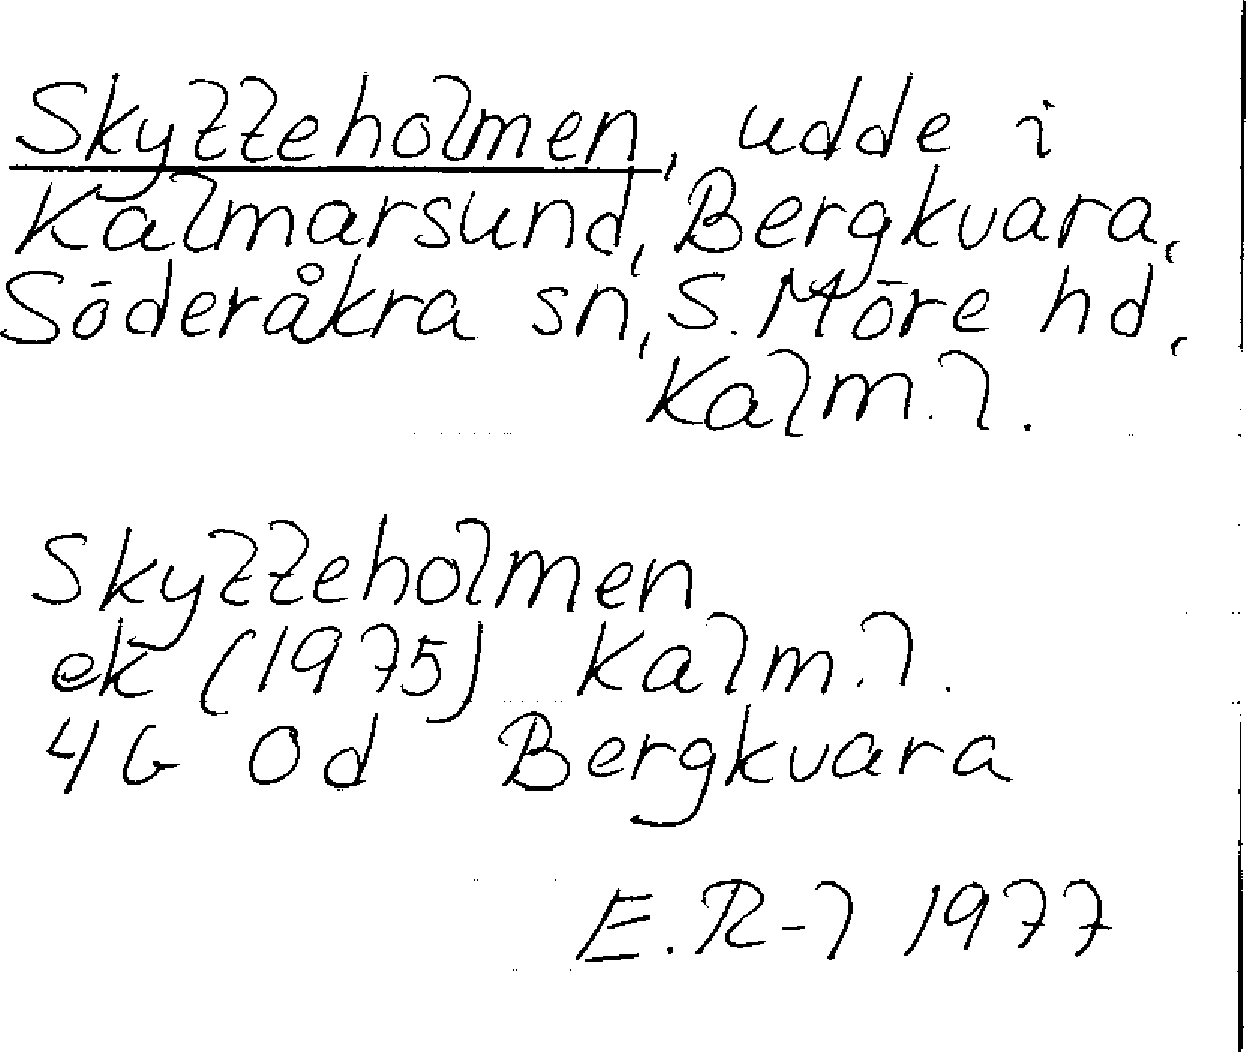 Skytteholmen, udde i
Kalmarsund, Bergkvara,
Söderåkra sn, S. Möre hd,
Kalm.l.
Skytteholmen
ek (1975) Kalm.l.
4G 0d Bergkvara
E.R-l 1977